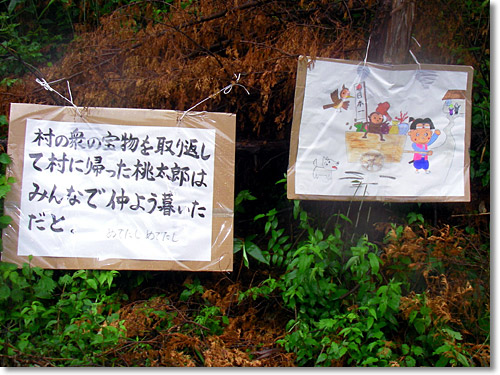 村の衆の宝物を取り返し
て村に帰った桃太郎は
みんなで仲よう暮いた
だと。
めでたしめでたし
日本一